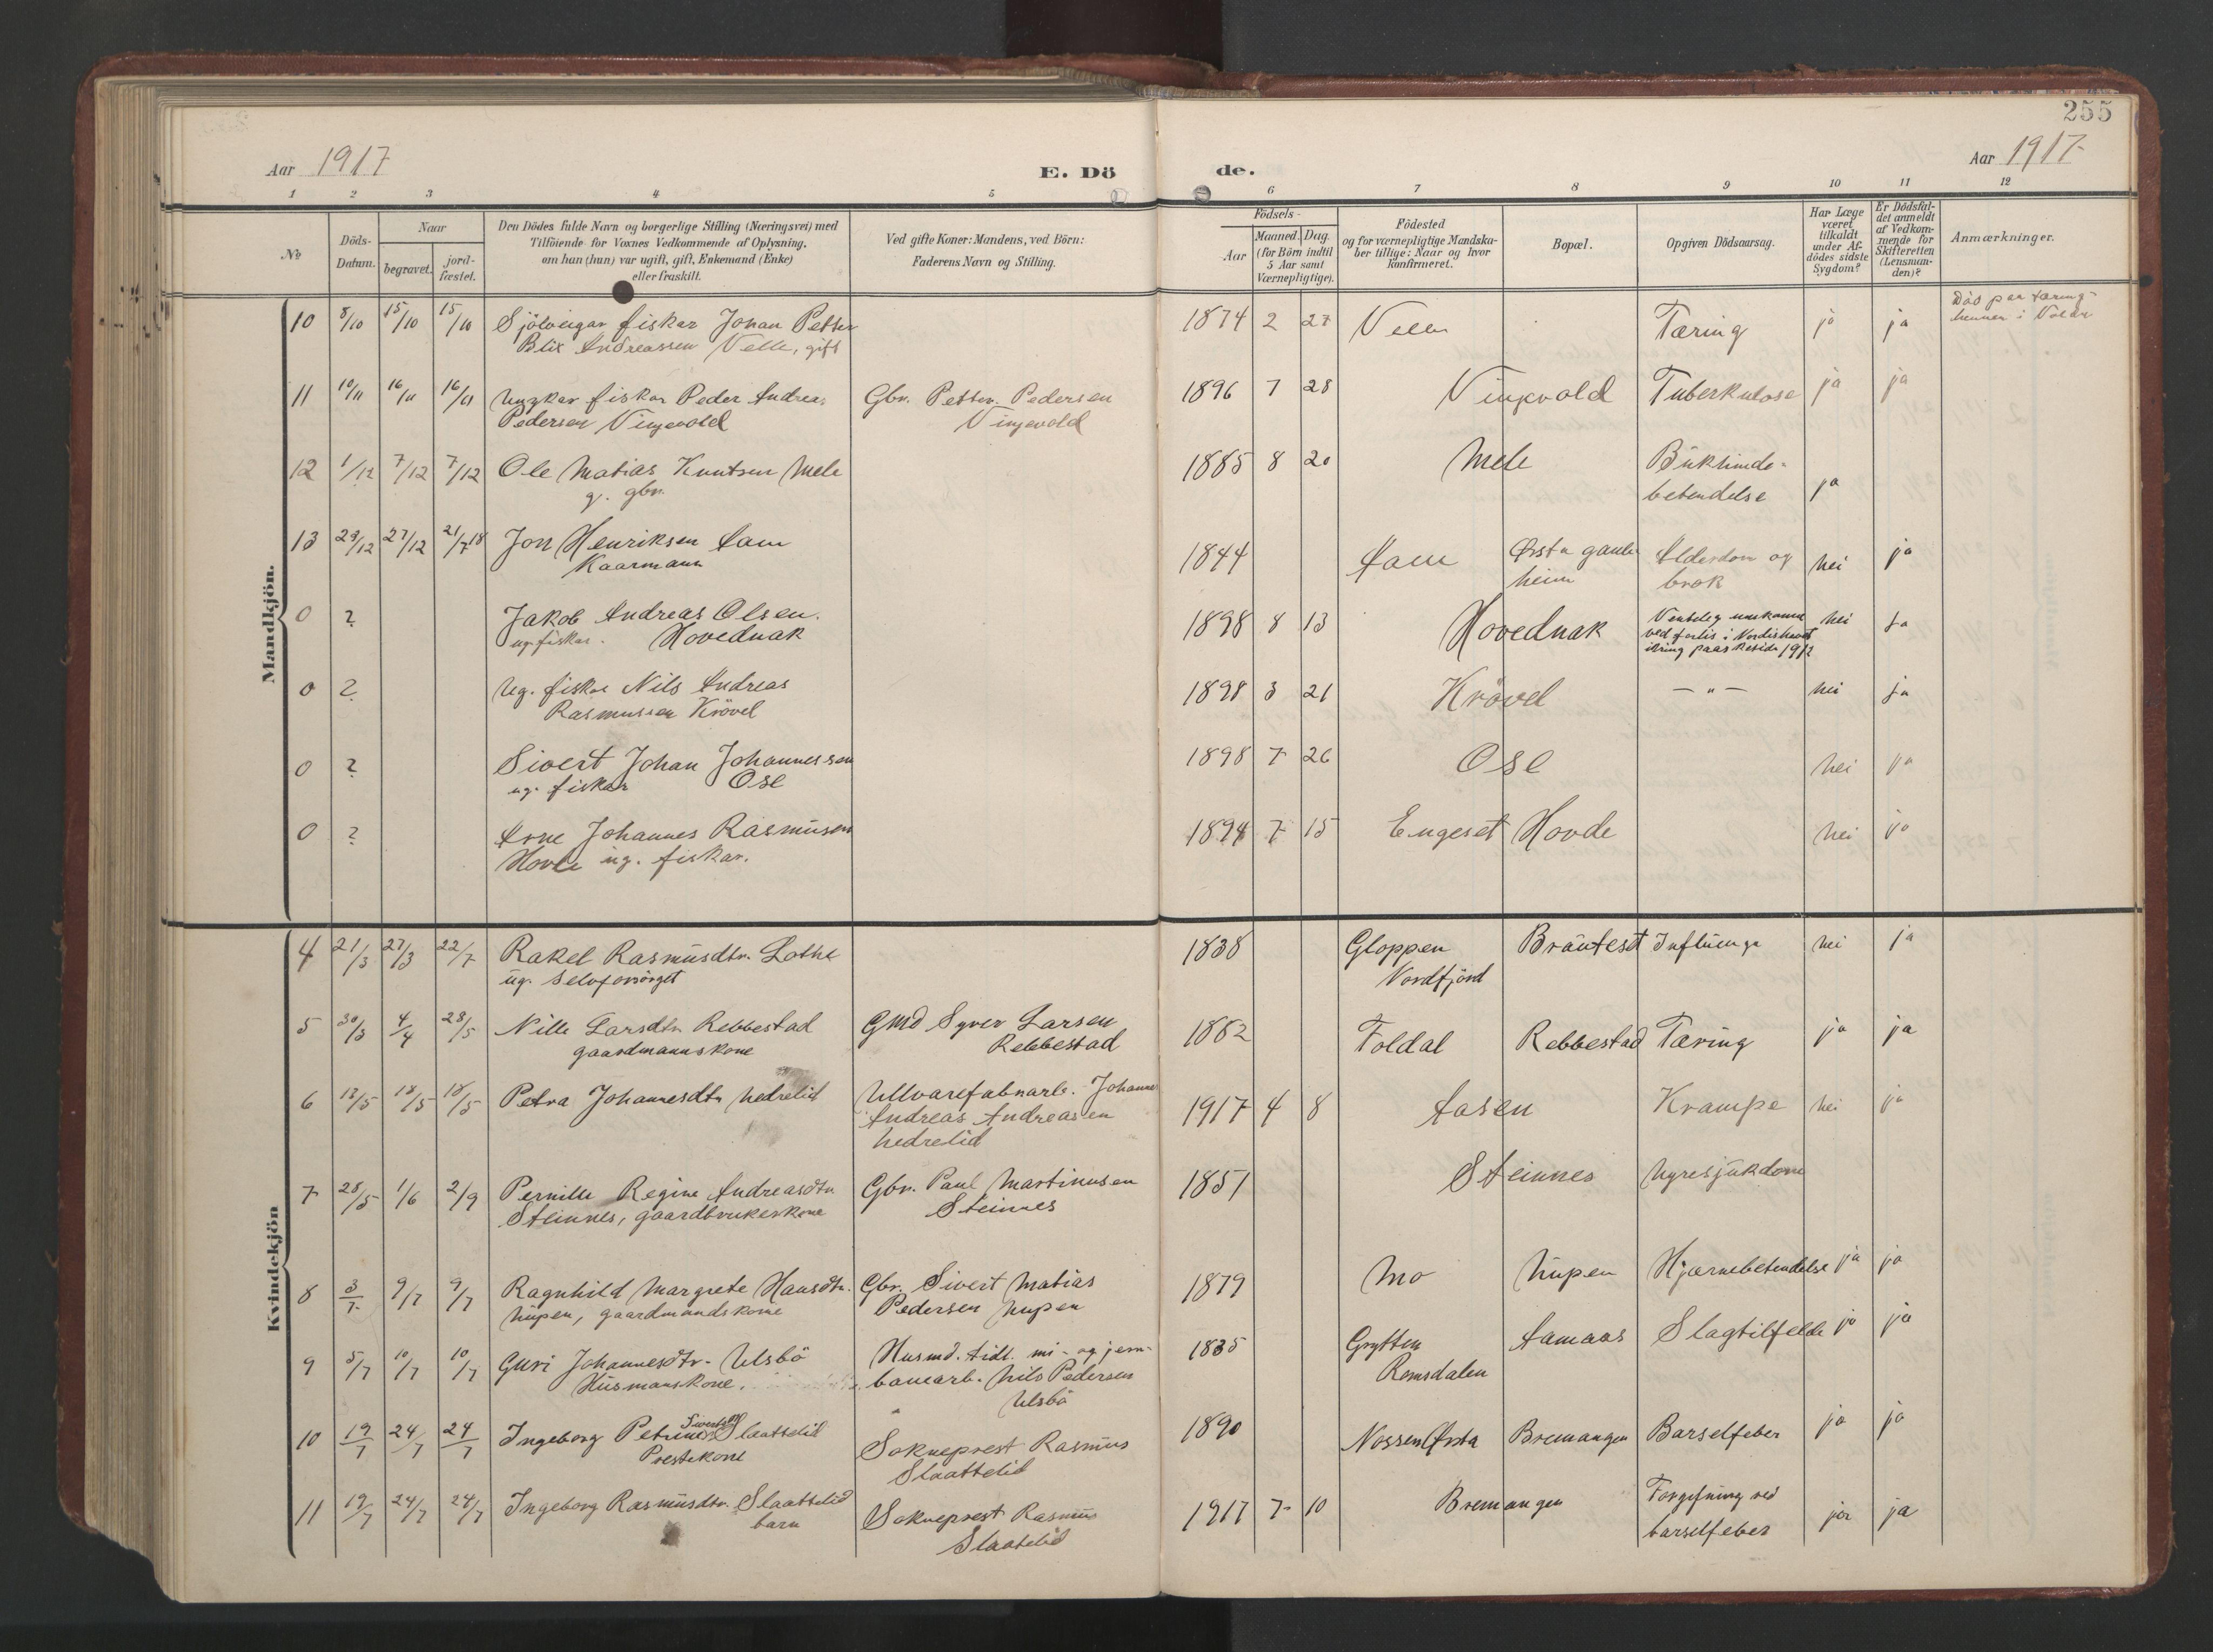 255
Aar 1917
E. Dö
de.
Aar 1917
1 2 3 4 5 6 7 8 9 10 11 12
No
Döds-
Datum.
Naar
begravet.
jord-
fæstet.
Den Dödes fulde Navn og borgerlige Stilling (Næringsvei) med
Tilföiende for Voxnes Vedkommende af Oplysning,
om han (hun) var ugift, gift, Enkemand (Enke)
eller fraskilt.
Ved gifte Koner: Mandens, ved Börn:
Faderens Navn og Stilling.
Födsels-
Aar
Maaned. Dag.
(for Börn indtil
5 Aar samt
Værnepligtige).
Födested
og for værnepligtige Mandska-
ber tillige: Naar og hvor
konfirmeret.
Bopæl.
Opgiven Dödsaarsag.
Har Læge
været
tilkaldt
under Af-
dödes sidste
Sygdom?
Er Dödsfal-
det anmeldt
af Vedkom-
mende for
Skifteretten
(Lensman-
den)?
Anmærkninger.
Mandkjön.
10 8/10 15/10 15/10 Sjölveigar fiskar Johan Petter
Blix Andreassen Velle, gift
1874 2 27 Velle Tæring ja ja
Död paa tæring-
heimen i Volda
11 10/11 16/11 16/11 Ungkar fiskar Peder Andreas
Pedersen Vingevold
Gbr. Petter Pedersen
Vingevold
1896 7 28 Vingevold Tuberkulose ja ja
12 1/12 7/12 7/12 Ole Matias Knutsen Mele
g. gbr.
1885 8 20 Mele Bukhinde-
betendelse ja
13 23/12 27/12 21/7 18 Jon Henriksen Aam
Kaarmann
1844 Aam Ørsta gamle
heim
Alderdom og
brok
nei ja
0 ? Jakob Andreas Olsen.
ug. fiskar. Hovednak
1898 8 13 Hovednak
Ventelig umkomne
ved forlis i Nordishavet
nei ja
0 ? Ug. fiskar Nils Andreas
Rasmussen Krövel
1898 3 21 Krövel — " — nei ja
0 ? Sivert Johan Johannessen
ug. fiskar Ose
1898 7 26 Ose nei ja
0 ? Arne Johannes Rasmusen
Hovde ug. fiskar.
1898 7 15 Engeset Hovde nei ja
Kvindekjön
4 21/3 27/3 22/7 Rakel Rasmusdtr. Lothe
ug. selvforsörget
1838 Gloppen
Nordfjord
Brauteset Influenza nei ja
5 30/3 4/4 28/5 Nille Larsdtr Rebbestad
gaardmannskone
Gmd Syver Larsen
Rebbestad
1882 Foldal Rebbestad Tæring ja ja
6 13/5 18/5 18/5 Petra Johannesdtr Nedrelid
Ullvarefabrarb. Johannes
Andreas Andreasen
Nedrelid
1917 4 8 Aasen Krampe nei ja
7 28/5 1/6 2/9 Pernille Regine Andreasdtr
Steinnes, gaardbrukerskone
Gbr. Paul Martinusen
Steinnes
1851 Steinnes Nyresjukdom
8 3/7 9/7 9/7 Ragnhild Margrete Hansdtr.
Nupen, gaardmandskone
Gbr. Sivert Matias
Pedersen Nupen
1879 Mo Nupen Hjernebetendelse ja ja
9 5/7 10/7 10/7 Guri Johannesdtr. Ulsbö
Husmanskone.
Husmd. tidl. mi- og jern-
banearb. Nils Pedersen
Ulsbö
1835 Grytten
Romsdalen
Aamaas Slagtilfelde ja ja
10 19/7 24/7 24/7 Ingeborg Petrine Sivertsdtr Slaattelid
Prestekone
Sokneprest Rasmus
Slaattelid
1890 Nossen Ørsta Bremangen Barselfeber ja ja
11 19/7 24/7 24/7 Ingeborg Rasmusdtr. Slaattelid
barn
Sokneprest Rasmus
Slaattelid
1917 7 10 Bremangen Forgifning ved
barselfeber
ja ja